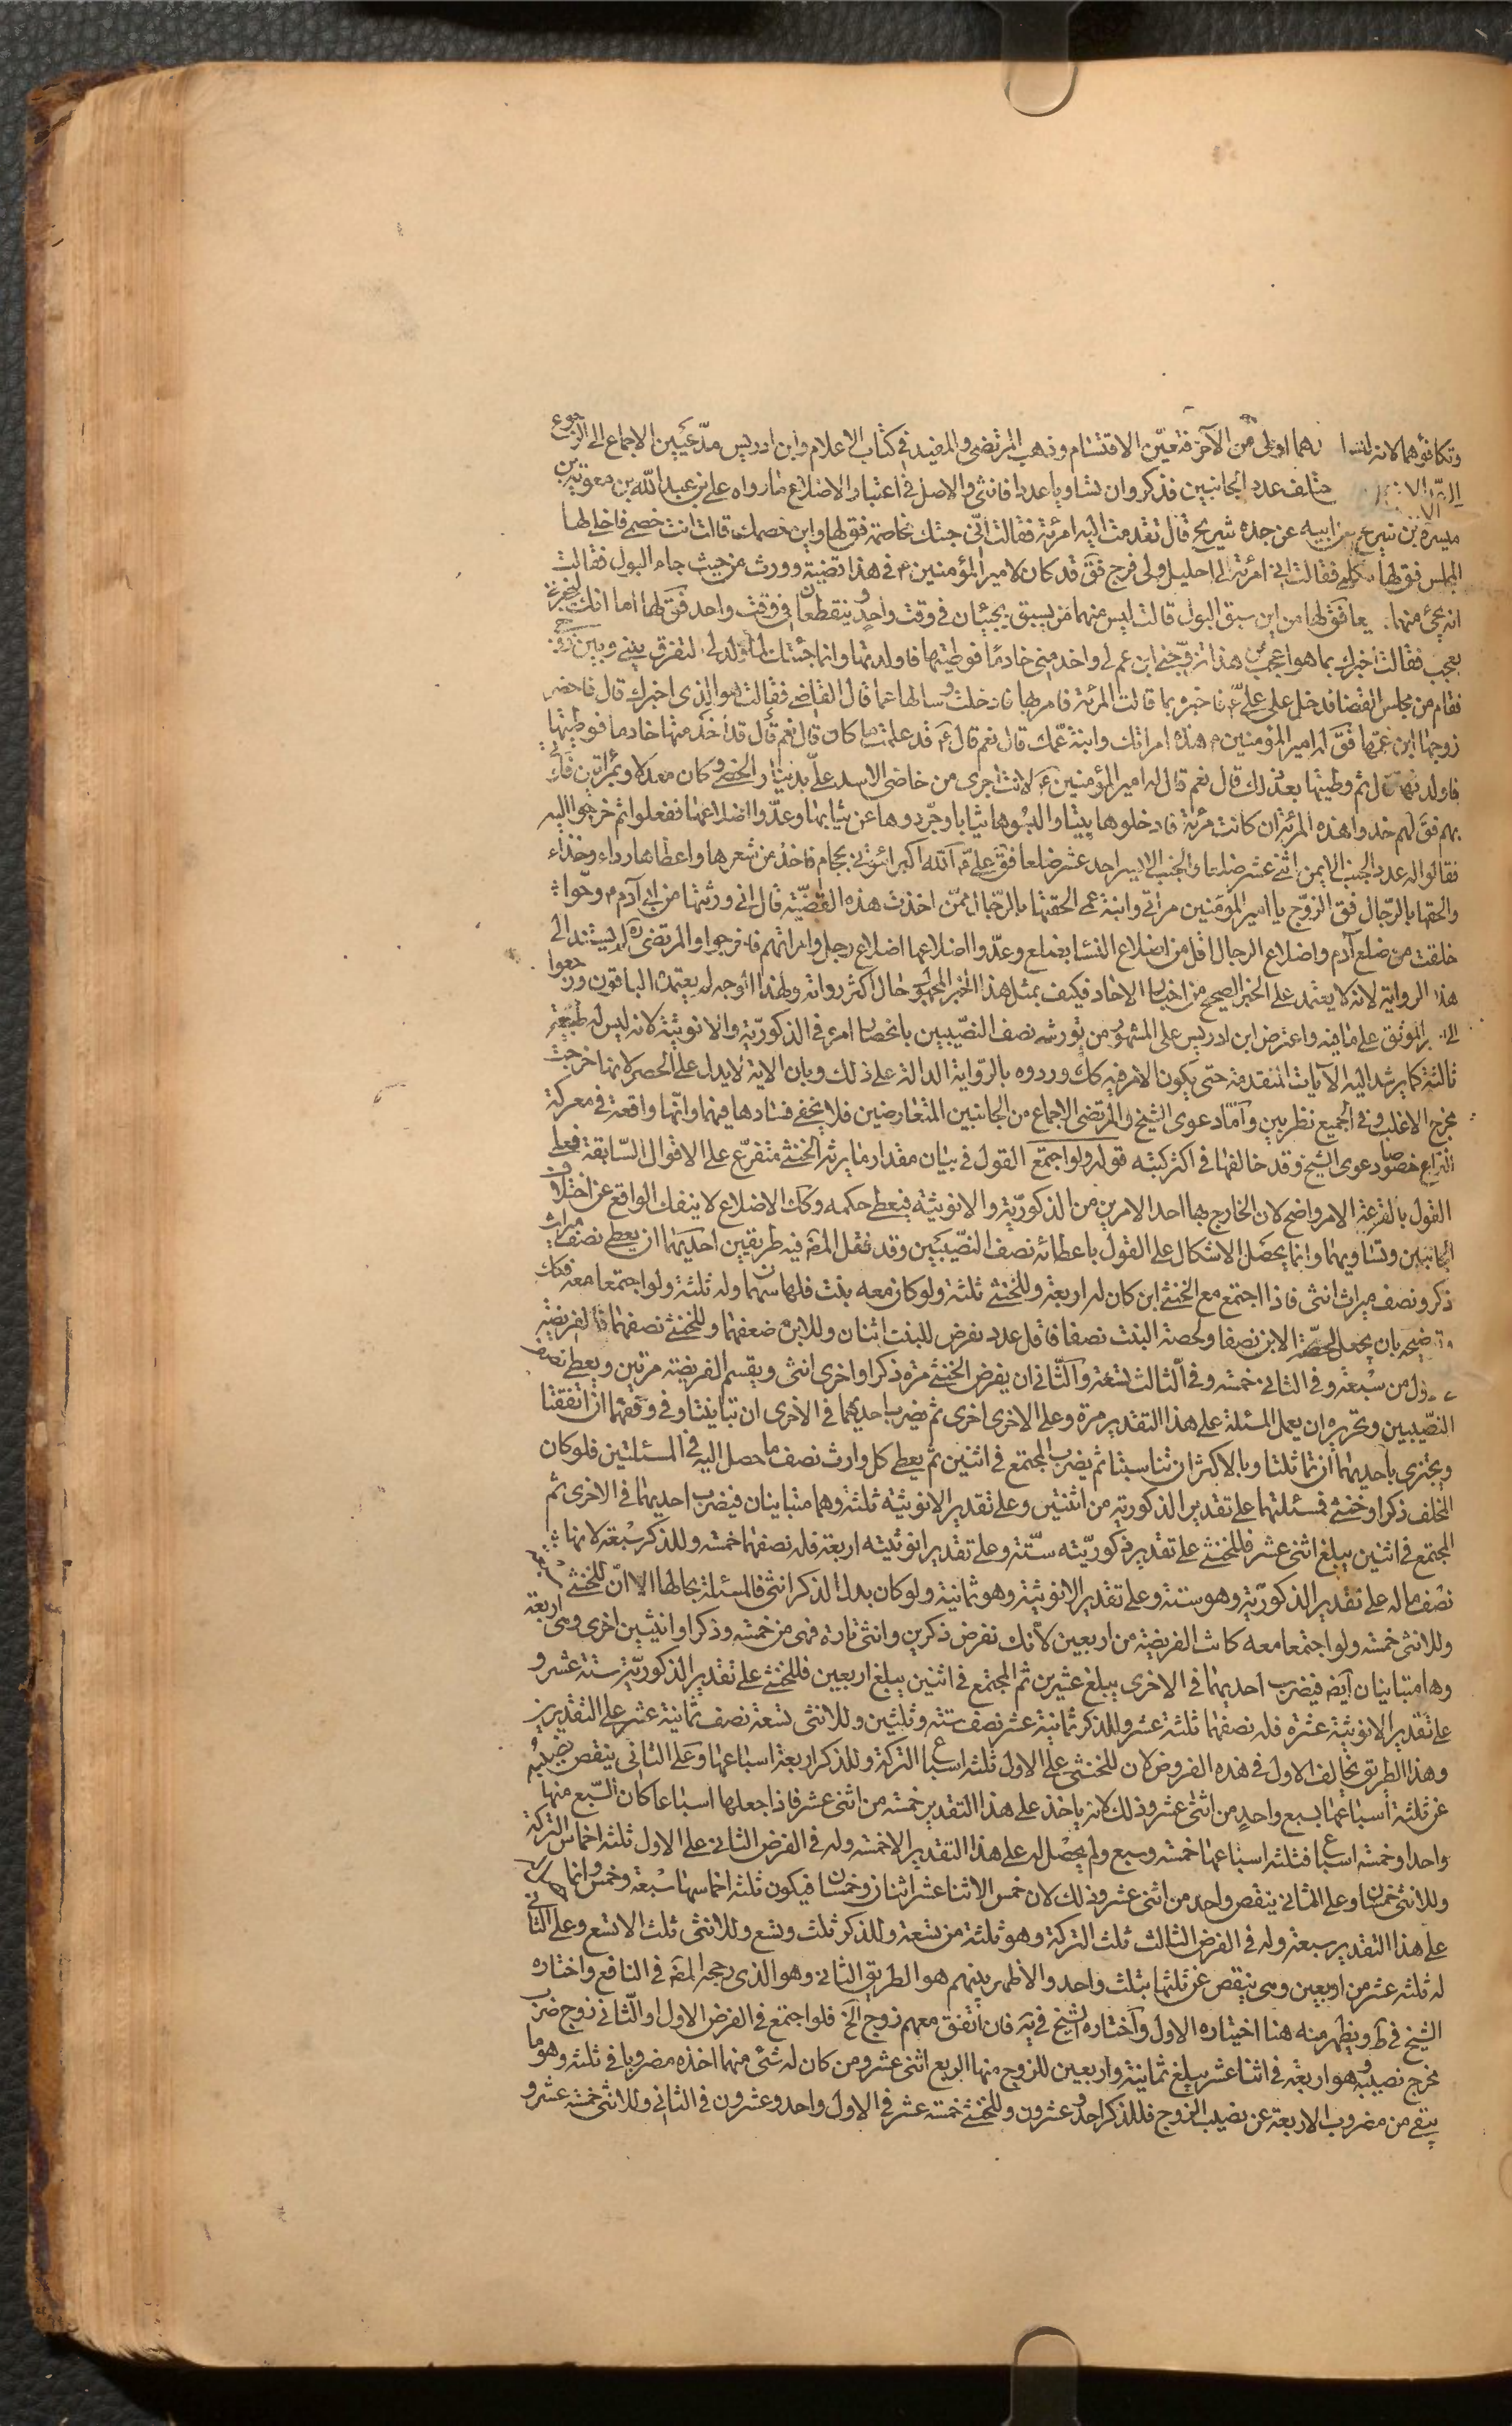 وتكافؤهما لانه ليس احدهما اولى من الآخر فتعيّن الاقتسام وذهب المرتضى والمفيد في كتاب الاعلام وابن ادريس مدّعيين الاجماع الى الرجوع
الى الاضلاع مختلف عدد الجانبين فذكر وان تساويا عددا فانثى والاصل في اعتبار الاضلاع ما رواه علي بن عبد الله بن معوية بن
ميسرة بن شريح عن ابيه عن جده شريح قال تقدمت اليه امرئة فقالت انّي جئتك مخاصمة فق لها واين خصمك قالت انت خصمي فاخلا لها
المجلس فق لها تكلمي فقالت اني امرئة لي احليل ولي فرج فق قد كان لامير المؤمنين ع في هذا قضية وورث من حيث جاء البول فقالت
انه يجئ منهما فق لها من اين سبق البول قالت ليس منهما من يسبق يجيئان في وقت واحد وينقطعان في وقت واحد فق لها اما انك لتخبرين
بعجب فقالت اخبرك بما هو اعجب من هذا تزوّجني ابن عم لي واخدمني خادما فوطيتها فاولدتها وانما جئتك لما ولد لي لتفرق بيني وبين زوجي
فقام من مجلس القضا فدخل على علي ع فاخبره بما قالت المرئة فامر بها فادخلت وسالها عما قال القاضي فقالت هو الذي اخبرك قال فاحضر
زوجها ابن عمها فق له امير المؤمنين ع هذه امراتك وابنة عمك قال نعم قال ع قد علمت ما كان قال نعم قال قد اخدمتها خادما فوطيتها
فاولدتها قال ثم وطيتها بعد ذلك قال نعم قال له امير المؤمنين ع لانت اجرى من خاضي الاسد علي بدينار الخصي وكان معدلا وبمراتين فاتي
بهم فق لهم خذوا هذه المرئة ان كانت مرئة فادخلوها بيتا والبسوها ثيابا وجرّدوها عن ثيابها وعدّوا اضلاعها ففعلوا ثم خرجوا اليه
فقالوا له عدد الجنب الايمن اثنى عشر ضلعا والجنب الايسر احد عشر ضلعا فق علي ع الله اكبر ائتوني بحجام فاخذ من شعرها واعطاها رداء وحذاء
والحقها بالرجال فق الزوج يا امير المؤمنين مراتي وابنة عمي الحقتها بالرجال ممن اخذت هذه القضيّة قال اني ورثتها من ابي آدم ع وحوا
خلقت من ضلع آدم واضلاع الرجال اقل من اضلاع النسا بضلع وعدّوا اضلاعها اضلاع رجل وامرائهم فاخرجوا والمرتضى ره لم يستند الى
هذه الرواية لانه لا يعتمد على الخبر الصحيح من اخبار الاحاد فكيف بمثل هذا الخبر المجهول حال اكثر رواته ولهذا الوجه لم يعتمد الباقون ورجعوا
الى الموثق على ما فيه واعترض ابن ادريس على المشهور من تورثه نصف النصيبين بانحصار امره في الذكورية والانوثية لانه ليس له طبيعة
ثالثة كما يرشد اليه الآيات المتقدمة حتى يكون الامر فيه كك وردوه بالرواية الدالة على ذلك وبان الاية لا يدل على الحصر لانها خرجت
مخرج الاغلب وفي الجميع نظر بين وامّا دعوى الشيخ والمرتضى الاجماع من الجانبين المتعارضين فلا يخفى فسادها فيهما وانّها واقعة في معركة
النزاع خصوصا دعوى الشيخ وقد خالفها في اكثر كتبه قوله ولو اجتمع القول في بيان مقدار ما يرثه الخنثى متفرّع على الاقوال السابقة فعلى
القول بالقرعة الامر واضح لان الخارج بها احد الامرين من الذكوريّة والانوثية فيعطى حكمه وكك الاضلاع لا ينفك الواقع عن اختلاف
الجانبين وتساويهما وانما يحصل الاشكال على القول باعطائه نصف النصيبين وقد نقل المص فيه طريقين احديهما ان يعطى نصف ميراث
ذكر ونصف ميراث انثى فاذا اجتمع مع الخنثى ابن كان له اربعة وللخنثى ثلثة ولو كان معه بنت فلها سهمان وله ثلثة ولو اجتمعا معه فكك
وتوضيحه بان يجعل لحصّة الابن نصفا ولحصة البنت نصفا فاقل عدد نفرض للبنت اثنان وللابن ضعفهما وللخنثى نصفهما فالفريضة
في الاول من سبعة وفي الثاني خمسة وفي الثالث تسعة والثاني ان يفرض الخنثى مرة ذكرا واخرى انثى ويقسم الفريضة مرتين ويعطى نصف
النصيبين وتحريره ان يعمل المسئلة على هذا التقدير مرة وعلى الاخرى اخرى ثم يضرب احديهما في الاخرى ان تباينتا وفي وفقهما ان اتفقتا
ويجتزى باحديهما ان تماثلتا وبالاكثر ان تناسبتا ثم يضرب المجتمع في اثنين ثم يعطى كل وارث نصف ما حصل اليه في المسئلتين فلو كان
المخلف ذكرا وخنثى فمسئلتهما على تقدير الذكورية من اثنتين وعلى تقدير الانوثيه ثلثة وهما متباينان فيضرب احديهما في الاخرى ثم
المجتمع في اثنين يبلغ اثنى عشر فللخنثى على تقدير ذكوريّته ستّة وعلى تقدير انوثيته اربعة فله نصفهما خمسة وللذكر سبعة لانها
نصف ما له على تقدير الذكوريّة وهو ستة وعلى تقدير الانوثية وهو ثمانية ولو كان بدل الذكر انثى فالمسئلة بحالها الا انّ للخنثى سبعة
وللانثى خمسة ولو اجتمعا معه كانت الفريضة من اربعين لانك تفرض ذكرين وانثى تارة فهي من خمسة وذكرا وانثيين اخرى وهي اربعة
وهما متباينان ايضا فيضرب احديهما في الاخرى يبلغ عشرين ثم المجتمع في اثنين يبلغ اربعين فللخنثى على تقدير الذكوريّة ستة عشر و
على تقدير الانوثية عشرة فله نصفهما ثلثة عشر وللذكر ثمانية عشر نصف ستة وثلثين وللانثى تسعة نصف ثمانية عشر على التقديرين
وهذا الطريق يخالف الاول في هذه الفروض لان للخنثى على الاول ثلثة اسباع التركة وللذكر اربعة اسباعها وعلى الثاني ينقص نصيبه
عن ثلثة اسباعها بسبع واحد من اثنى عشر وذلك لانه ياخذ على هذا التقدير خمسة من اثنى عشر فاذا جعلها اسباعا كان السبع منها
واحدا وخمسة اسباع فثلثة اسباعها خمسة وسبع ولم يحصل له على هذا التقدير الا خمسة وله في الفرض الثاني على الاول ثلثة اخماس التركة
وللانثى خمسان وعلى الثاني ينقص واحد من اثنى عشر وذلك لان خمس الاثنا عشر اثنان وخمسان فيكون ثلثة اخماسها سبعة وخمس وانما
على هذا التقدير سبعة وله في الفرض الثالث ثلث التركة وهو ثلثة من تسعة وللذكر ثلث وتسع وللانثى ثلث الا تسع وعلى الثاني
له ثلثة عشر من اربعين وهي ينقص عن ثلثها بثلث واحد والاظهر بينهم هو الطريق الثاني وهو الذي رجحه المص في النافع واختاره
الشيخ في ط ويظهر منه هنا اختياره الاول واختاره الشيخ في يه فان اتفق معهم زوج الخ فلو اجتمع في الفرض الاول او الثاني زوج ضرب
مخرج نصيبه وهو اربعة في اثنا عشر يبلغ ثمانية واربعين للزوج منها الربع اثنى عشر ومن كان له شئ منهما اخذه مضروبا في ثلثة وهو ما
يبقى من مضروب الاربعة عن نصيب الزوج فللذكر احد وعشرون وللخنثى خمسة عشر في الاول واحد وعشرون في الثاني وللانثى خمسة عشر و